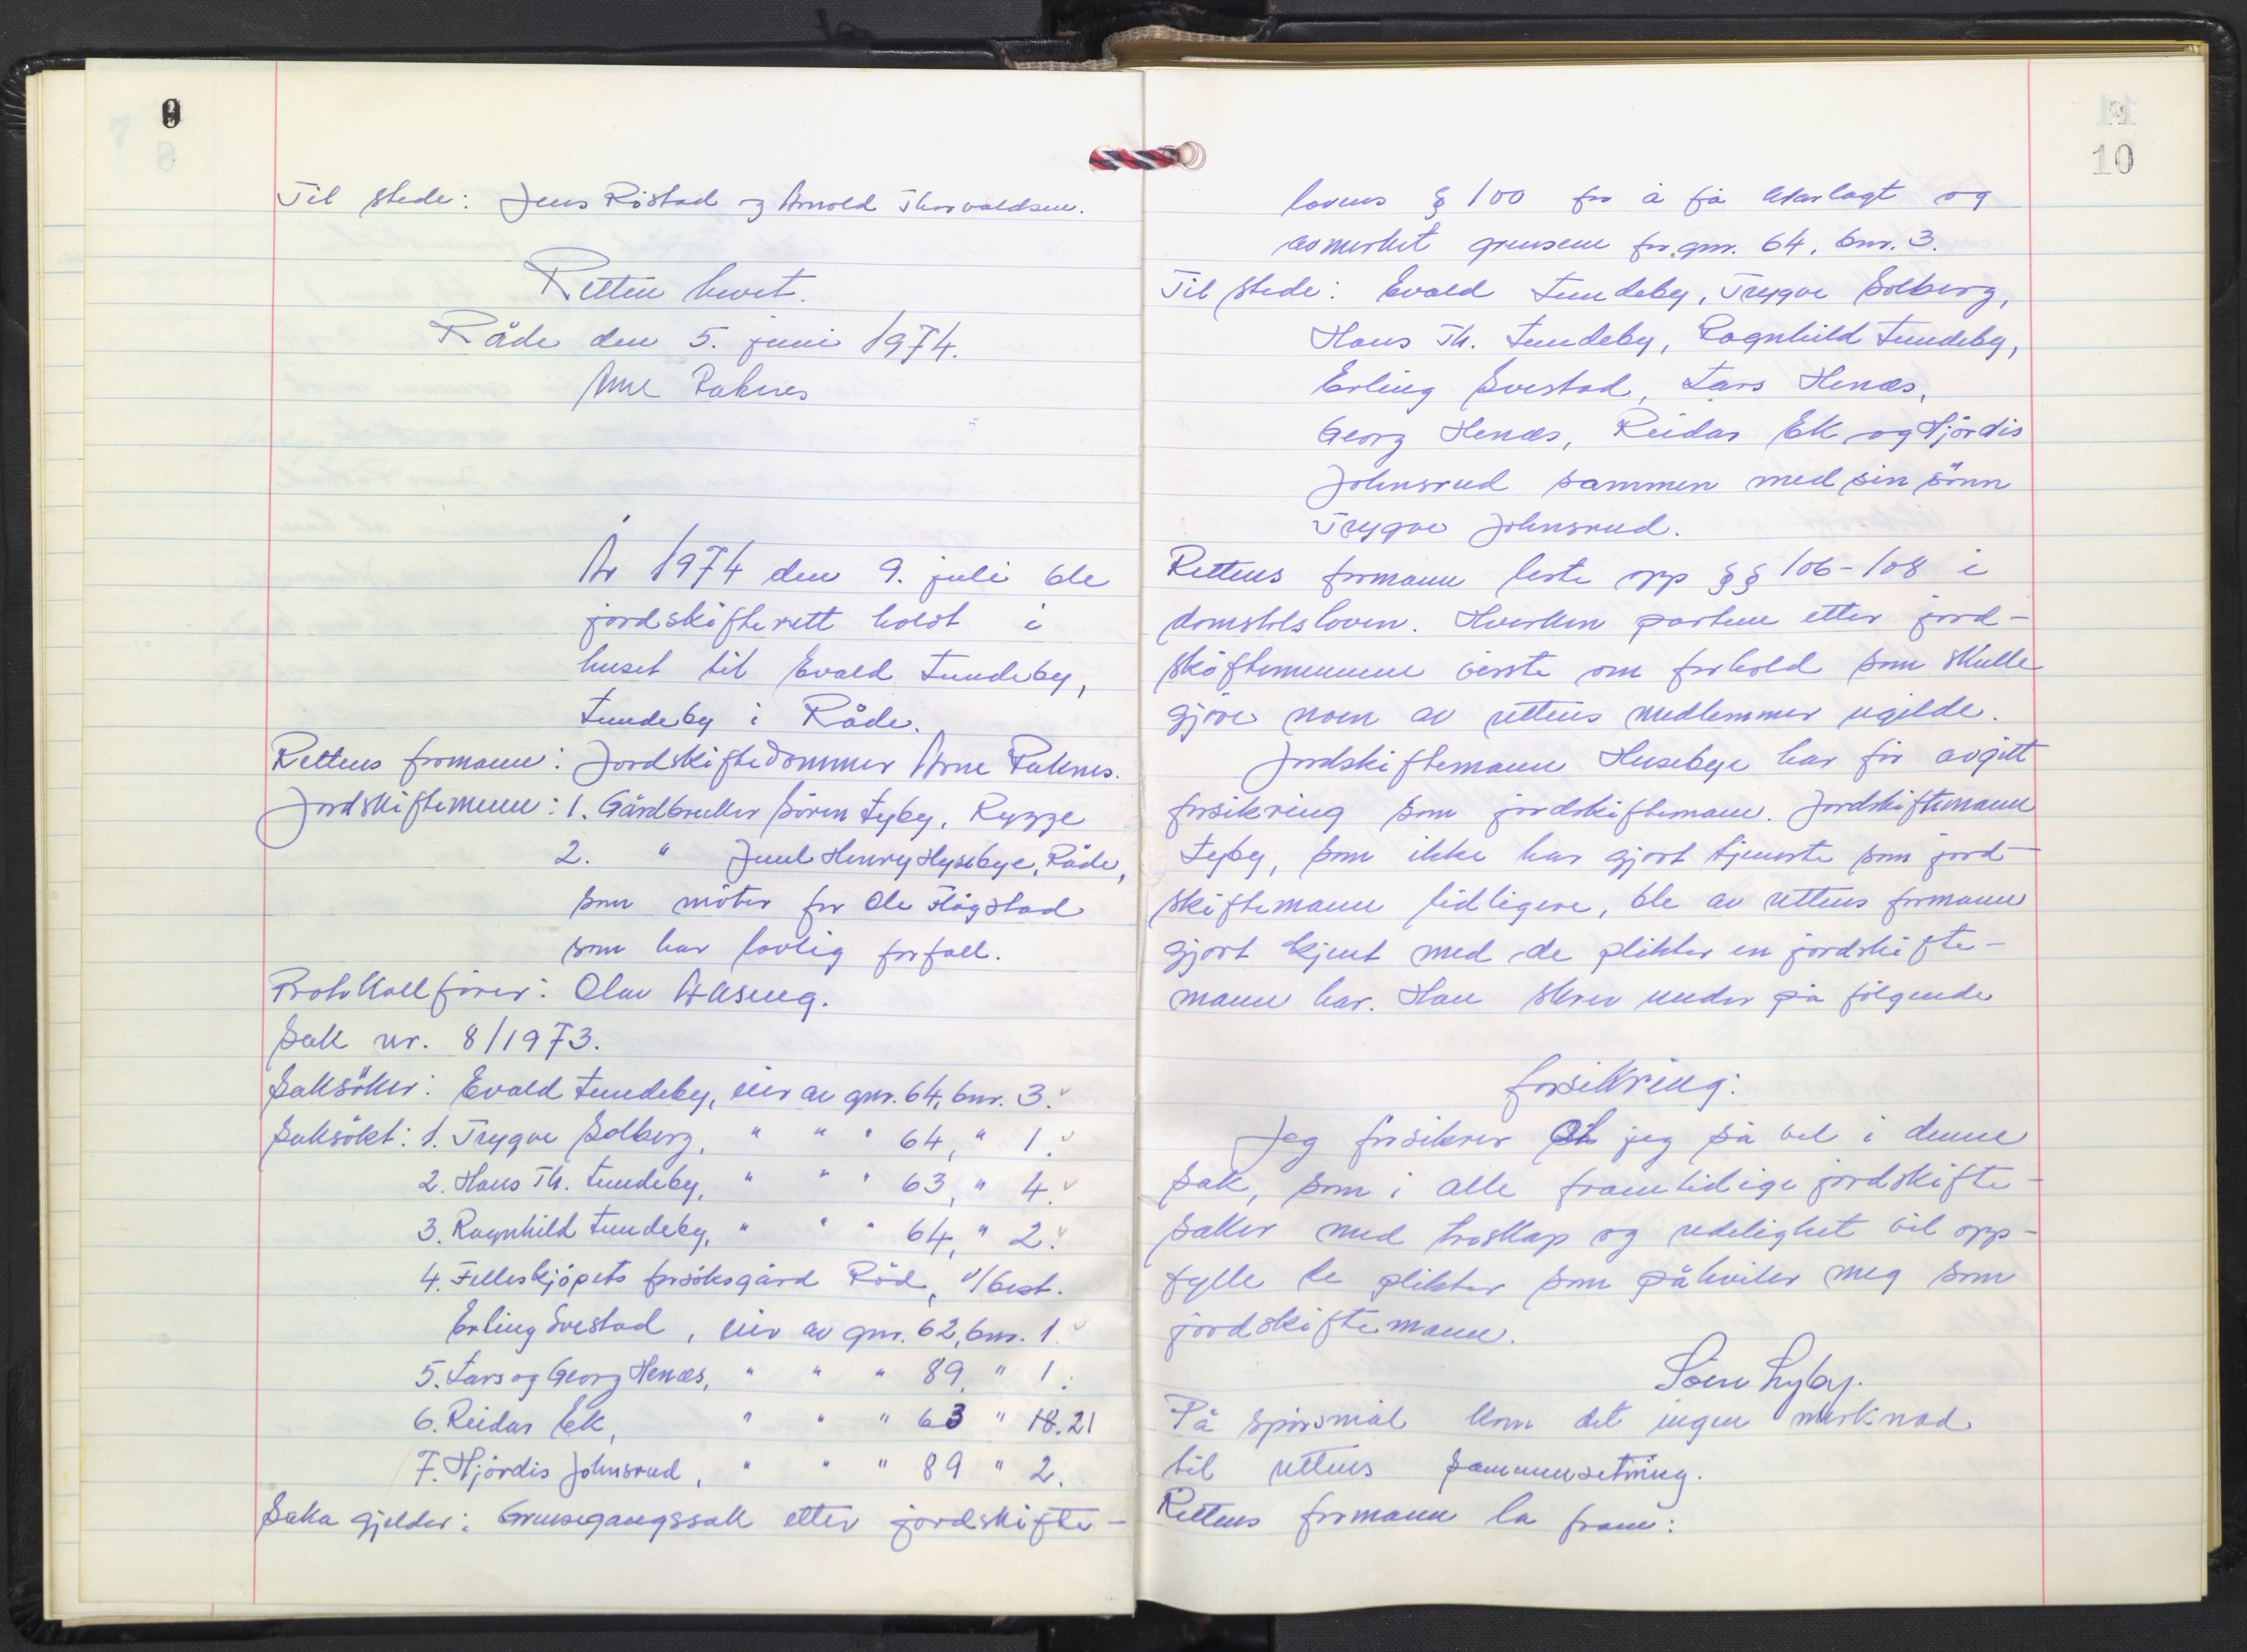 9
Til stede: Jens Ristad og Arnold Thorvaldsen.
Retten hevet.
Råde den 5. juni 1974.
Arne Raknes
År 1974 den 9. juli ble
jordskifterett holdt i
huset til Evald Lundeby,
Lundeby i Råde.
Rettens formann: Jordskiftedommer Arne Raknes.
Jordskiftemenn: 1. Gårdbruker Søren Lyby, Rygge
2. " Juul Henry Husebye, Råde,
som møter for Ole Hågstad
som har lovlig forfall.
Protokollfører: Olav Aaseng.
Sak nr. 8/1973.
Saksøker: Evald Lundeby, eier av gnr. 64, bnr. 3.
Saksøkt: 1. Trygve Solberg, " " " 64, " 1.
2. Hans Th. Lundeby, " " " 63, " 4.
3. Ragnhild Lundeby, " " " 64, " 2.
4. Felleskjøpets forsøksgård Röd, v/best.
Erling Svestad, eier av gnr. 62, bnr. 1.
5. Lars og Georg Henæs, " " " 89, " 1.
6. Reidar Ek, " " " 63 " 18.21
7. Hjördis Johnsrud, " " " 89 " 2.
Saka gjelder: Grensegangssak etter jordskifte-
10
lovens § 100 for å få klarlagt og
avmerket grensene for gnr. 64, bnr. 3.
Til stede: Evald Lundeby, Trygve Solberg,
Hans Th. Lundeby, Ragnhild Lundeby,
Erling Svestad, Lars Henæs,
Georg Henæs, Reidar Ek og Hjördis
Johnsrud sammen med sin sönn
Trygve Johnsrud.
Rettens formann leste opp §§ 106-108 i
domstolsloven. Hverken partene etter jord-
skiftemennene visste om forhold som skulle
gjöre noen av rettens medlemmer ugilde.
Jordskiftemann Husebye har för avgitt
forsikring som jordskiftemann. Jordskiftemann
Lyby, som ikke har gjort tjeneste som jord-
skiftemann tidligere, ble av rettens formann
gjort kjent med de plikter en jordskifte-
mann har. Han skrev under på fölgende
forsikring:
Jeg forsikrer at jeg så vel i denne
sak, som i alle framtidige jordskifte-
saker med troskap og redelighet vil opp-
fylle de plikter som påhviler meg som
jordskiftemann.
Sören Lyby.
På spörsmål kom det ingen merknad
til rettens sammensetning.
Rettens formann la fram: